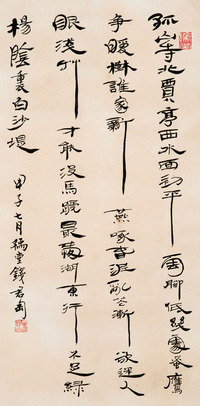 孤山寺北賈亭西水面初平雲腳低幾處蚤鶯
爭暖樹誰家新燕啄春泥亂花漸欲迷人
眼淺草才能沒馬蹄最愛湖東行不足綠
楊陰裏白沙堤
甲子七月豫堂錢君匋